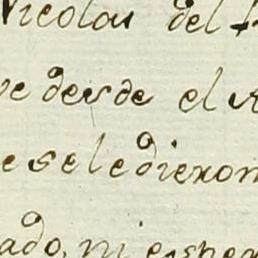 Nicolas del
desde el
e se le dieron
ado, ni esper